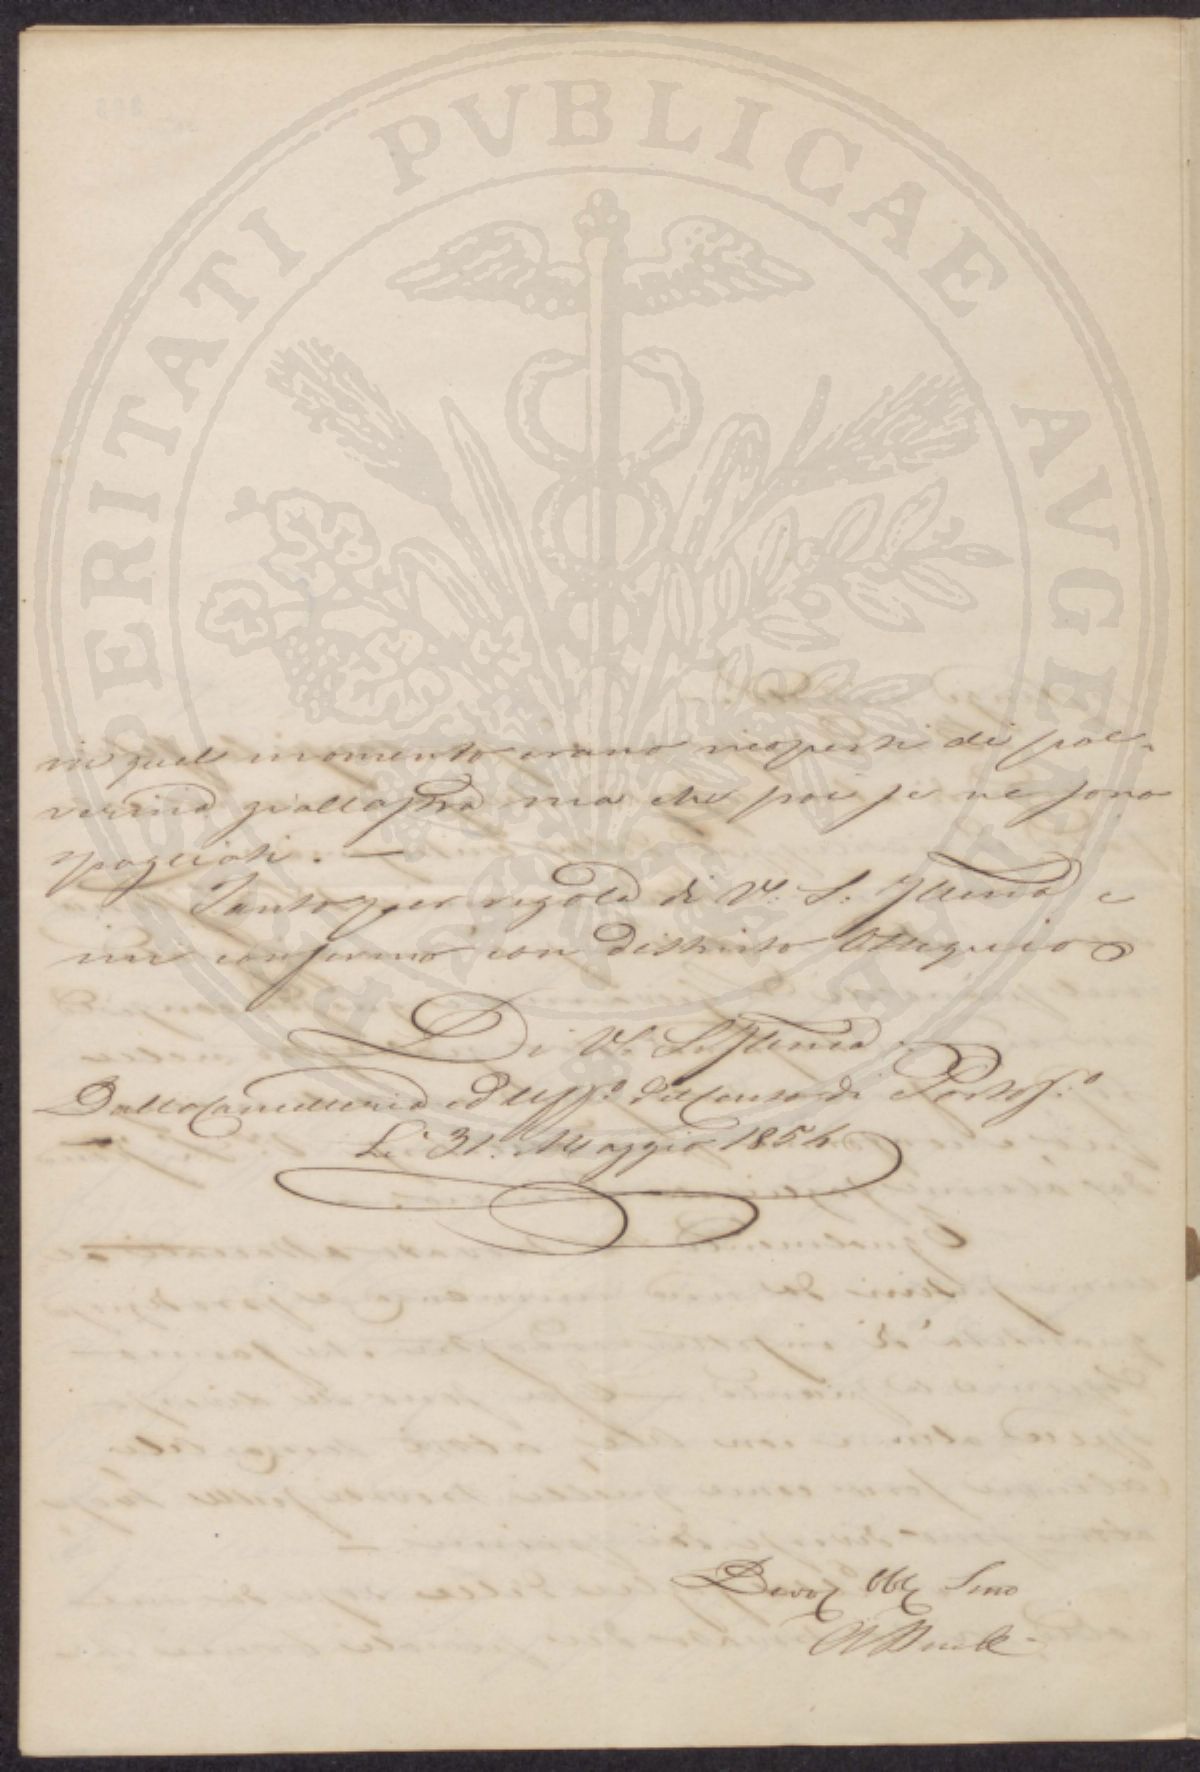 PROSPERITATI PVBLICAE AVGENDAE
in quel momento erano ricoperti di pol-
verina giallastra ma che poi se ne sono
spogliati. —
Tanto per regola di V. S. Illma e
mi confermo con distinto Ossequio
Di V. S. Illma
Dalla Cancelleria ed Uffo del Censo di Portof.o
Li 31. Maggio 1854
Devoz Obb Servo